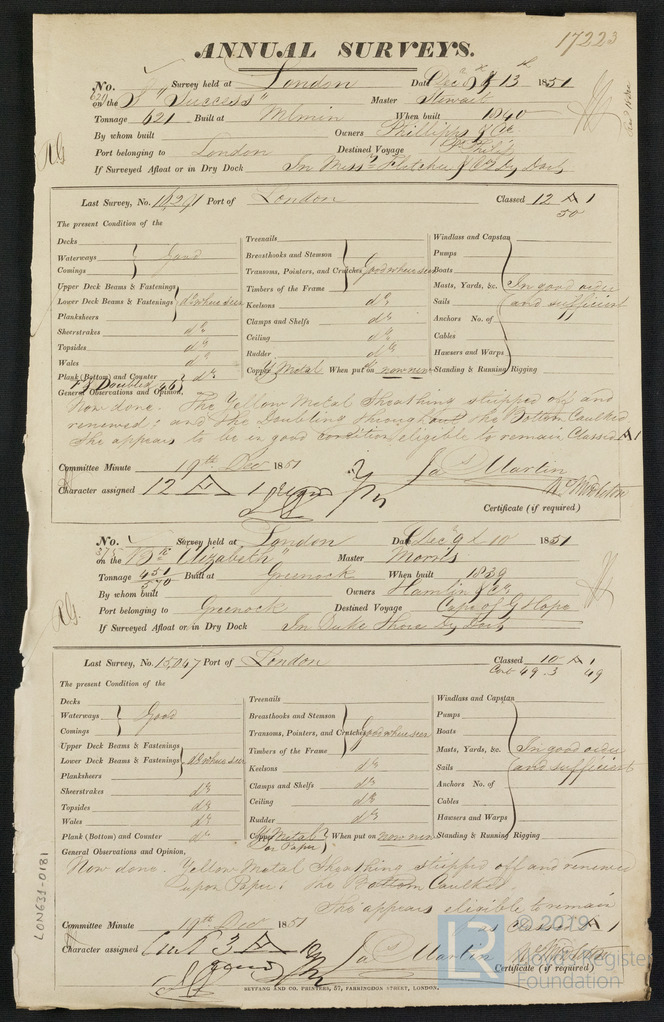 17223
ANNUAL SURVEYS.
No. Survey held at London Date Dec 13 1851
on the S "Success" Master Stewart
Tonnage 621 Built at When built 1840
By whom built Owners Phillipps & Co
Port belonging to London Destined Voyage
If Surveyed Afloat or in Dry Dock In Mess Fletcher & Co Dry Dock
Last Survey, No. Port of London Classed 12 A 1
50
The present Condition of the
Decks
Waterways Good
Comings
Upper Deck Beams & Fastenings
Lower Deck Beams & Fastenings do where seen
Planksheers
Sheerstrakes do
Topsides do
Wales do
Plank (Bottom) and Counter do
Doubled 46
Treenails
Breasthooks and Stemson
Transoms, Pointers, and Crutches Good where seen
Timbers of the Frame
Keelsons do
Clamps and Shelfs do
Ceiling do
Rudder do
Copper Y Metal When put on now new
Windlass and Capstan
Pumps
Boats
Masts, Yards, &c. In good order
Sails and sufficient
Anchors No. of
Cables
Hawsers and Warps
Standing & Running Rigging
General Observations and Opinion,
Now done. The Yellow Metal Sheathing stripped off and
renewed; and the Doubling throughout the Bottom Caulked.
She appears to be in good condition eligible to remain Classed A 1
Committee Minute 19th Dec 1851
Character assigned 12 A 1
Jas Martin
Certificate (if required)
No. Survey held at London Date Dec 9 & 10 1851
on the Bk "Elizabeth" Master Morris
Tonnage 451 Built at Greenock When built 1839
570
By whom built Owners Hamlin & Co
Port belonging to Greenock Destined Voyage Cape of G Hope
If Surveyed Afloat or in Dry Dock In Duke Shore Dry Dock
Last Survey, No. 15,047 Port of London Classed 10 A 1
Cont 49.3 49
The present Condition of the
Decks
Waterways Good
Comings
Upper Deck Beams & Fastenings
Lower Deck Beams & Fastenings do where seen
Planksheers
Sheerstrakes do
Topsides do
Wales do
Plank (Bottom) and Counter do
Treenails
Breasthooks and Stemson
Transoms, Pointers, and Crutches Good where seen
Timbers of the Frame
Keelsons do
Clamps and Shelfs do
Ceiling do
Rudder do
Copper Y Metal When put on now new
on Paper
Windlass and Capstan
Pumps
Boats
Masts, Yards, &c. In good order
Sails and sufficient
Anchors No. of
Cables
Hawsers and Warps
Standing & Running Rigging
General Observations and Opinion,
Now done. Yellow Metal Sheathing stripped off and renewed
upon Paper; the Bottom Caulked.
She appears eligible to remain
as Classed A 1
Committee Minute 19th Dec 1851
Character assigned Cont 3 A
Jas Martin
Certificate (if required)
SEYFANG AND CO. PRINTERS, 57, FARRINGDON STREET, LONDON.
LON631-0181
LR
© 2019
Lloyd's Register
Foundation